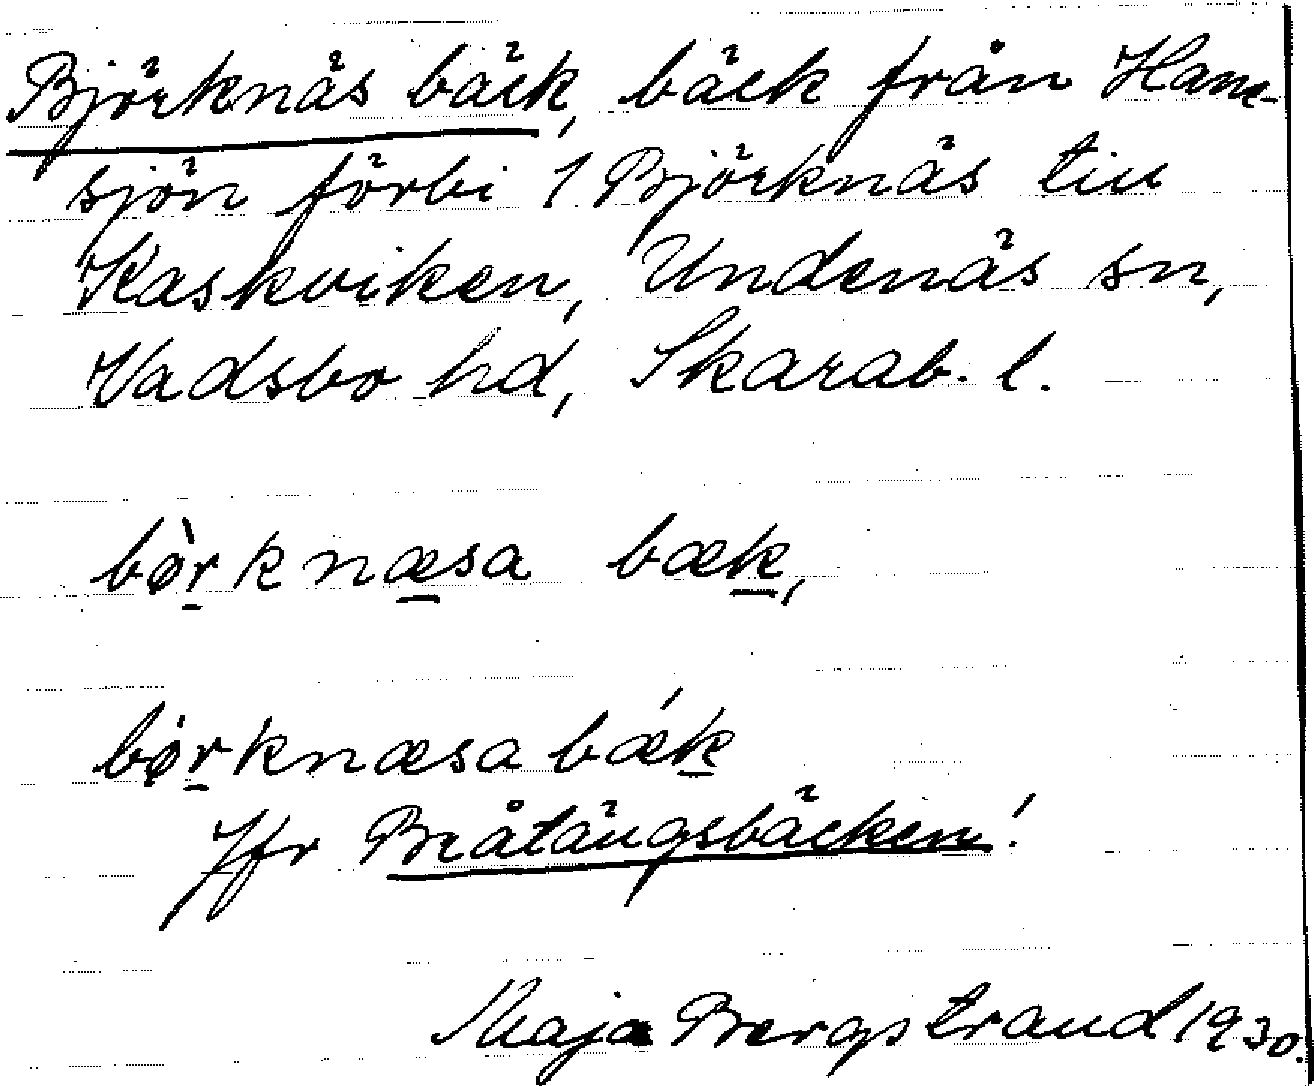 Björknäs bäck, bäck från Ham-
sjön förbi 1 Björknäs till
Kaskviken, Undenäs sn,
Vadsbo hd, Skarab. l.
bø̀r̲knæ̲sa bæk̲,
bør̲knæsabǽk̲
Jfr Bråtängsbäcken!
Maja Bergstrand 1930.